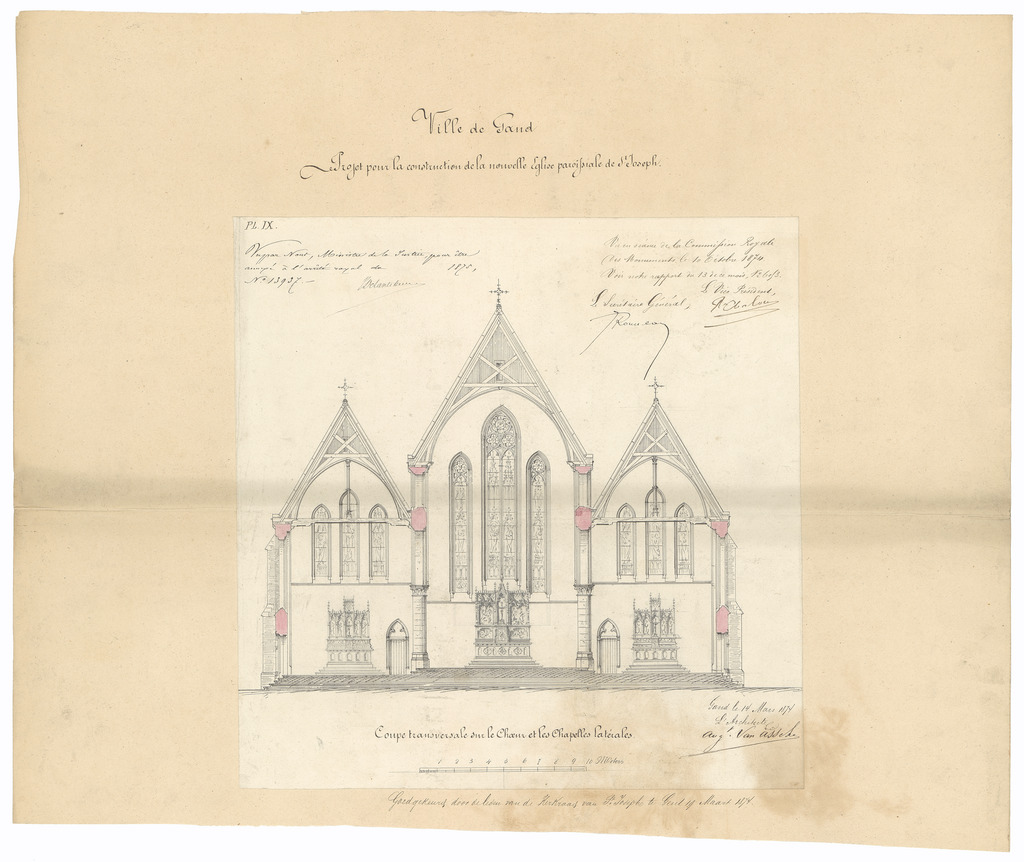 Ville de Gand
Projet pour la construction de la nouvelle Eglise paroissiale de St Joseph.
Pl. IX.
Vu par Nous, Ministre de la Justice pour être
annexé à l'arrêté royal du 1875,
N° 13937
Vu en séance de la Commission Royale
des Monuments le 10 Octobre 1874.
Voir notre rapport du 13 de ce mois,
Le Secrétaire Général,
Le Vice Président,
Rousseau
Gand le 14 Mars 1874
L'Architecte
Aug. Van Assche
Coupe transversale sur le Chœur et les Chapelles latérales
1 2 3 4 5 6 7 8 9 10 Mètres
Goedgekeurd door de leden van de Kerkraad van St. Joseph te Gent 17 Maart 1874